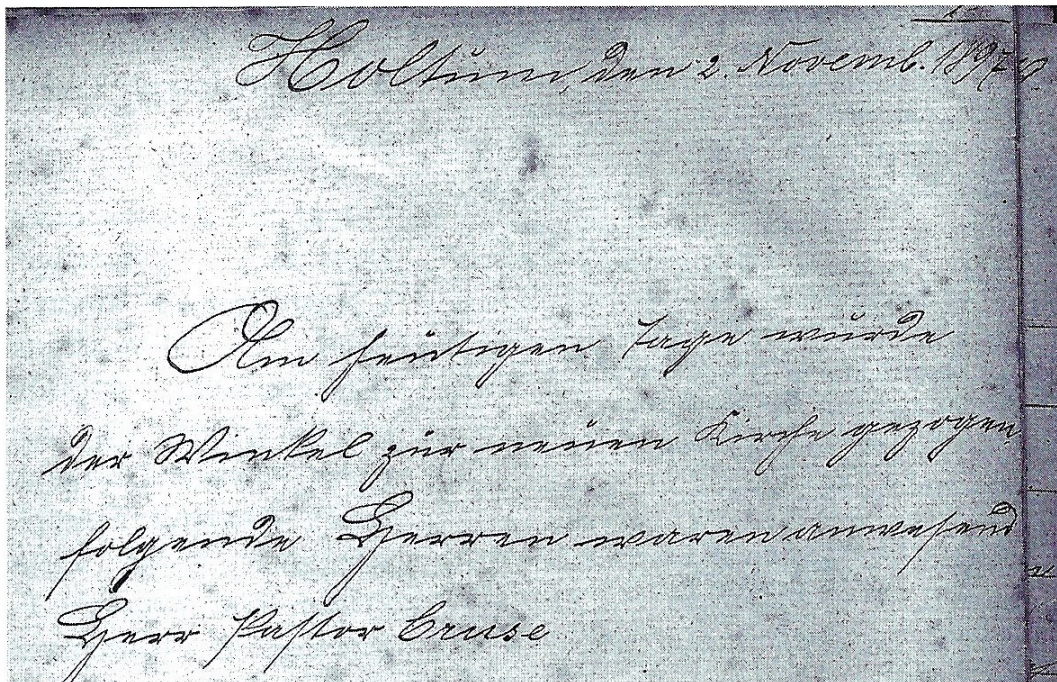 Holtum, den 2. Novemb. 1897
Am heutigen Tage wurde
der Winkel zur neuen Kirche gezogen,
folgende Herren waren anwesend
Herr Pastor Cruse